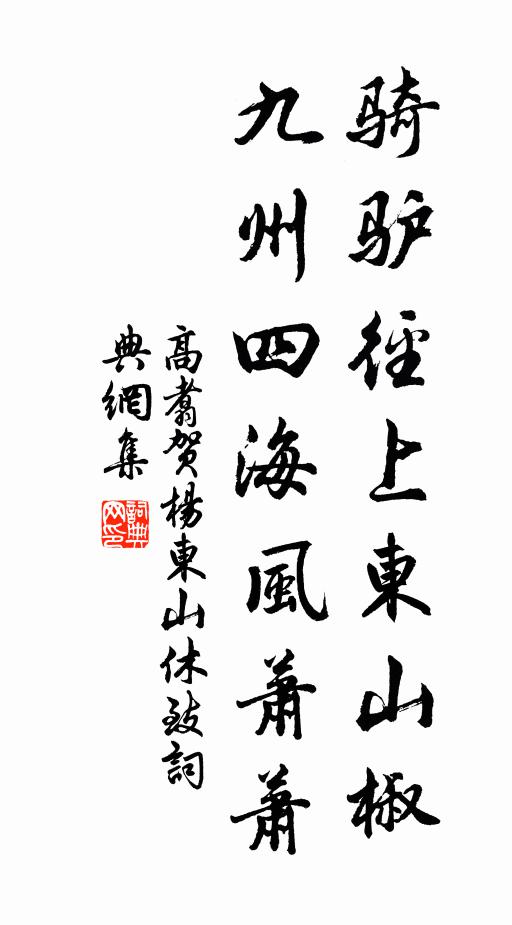 骑驴径上東山椒
九州四海風蕭蕭
高翥贺楊東山休致詞
典網集
詞典网印